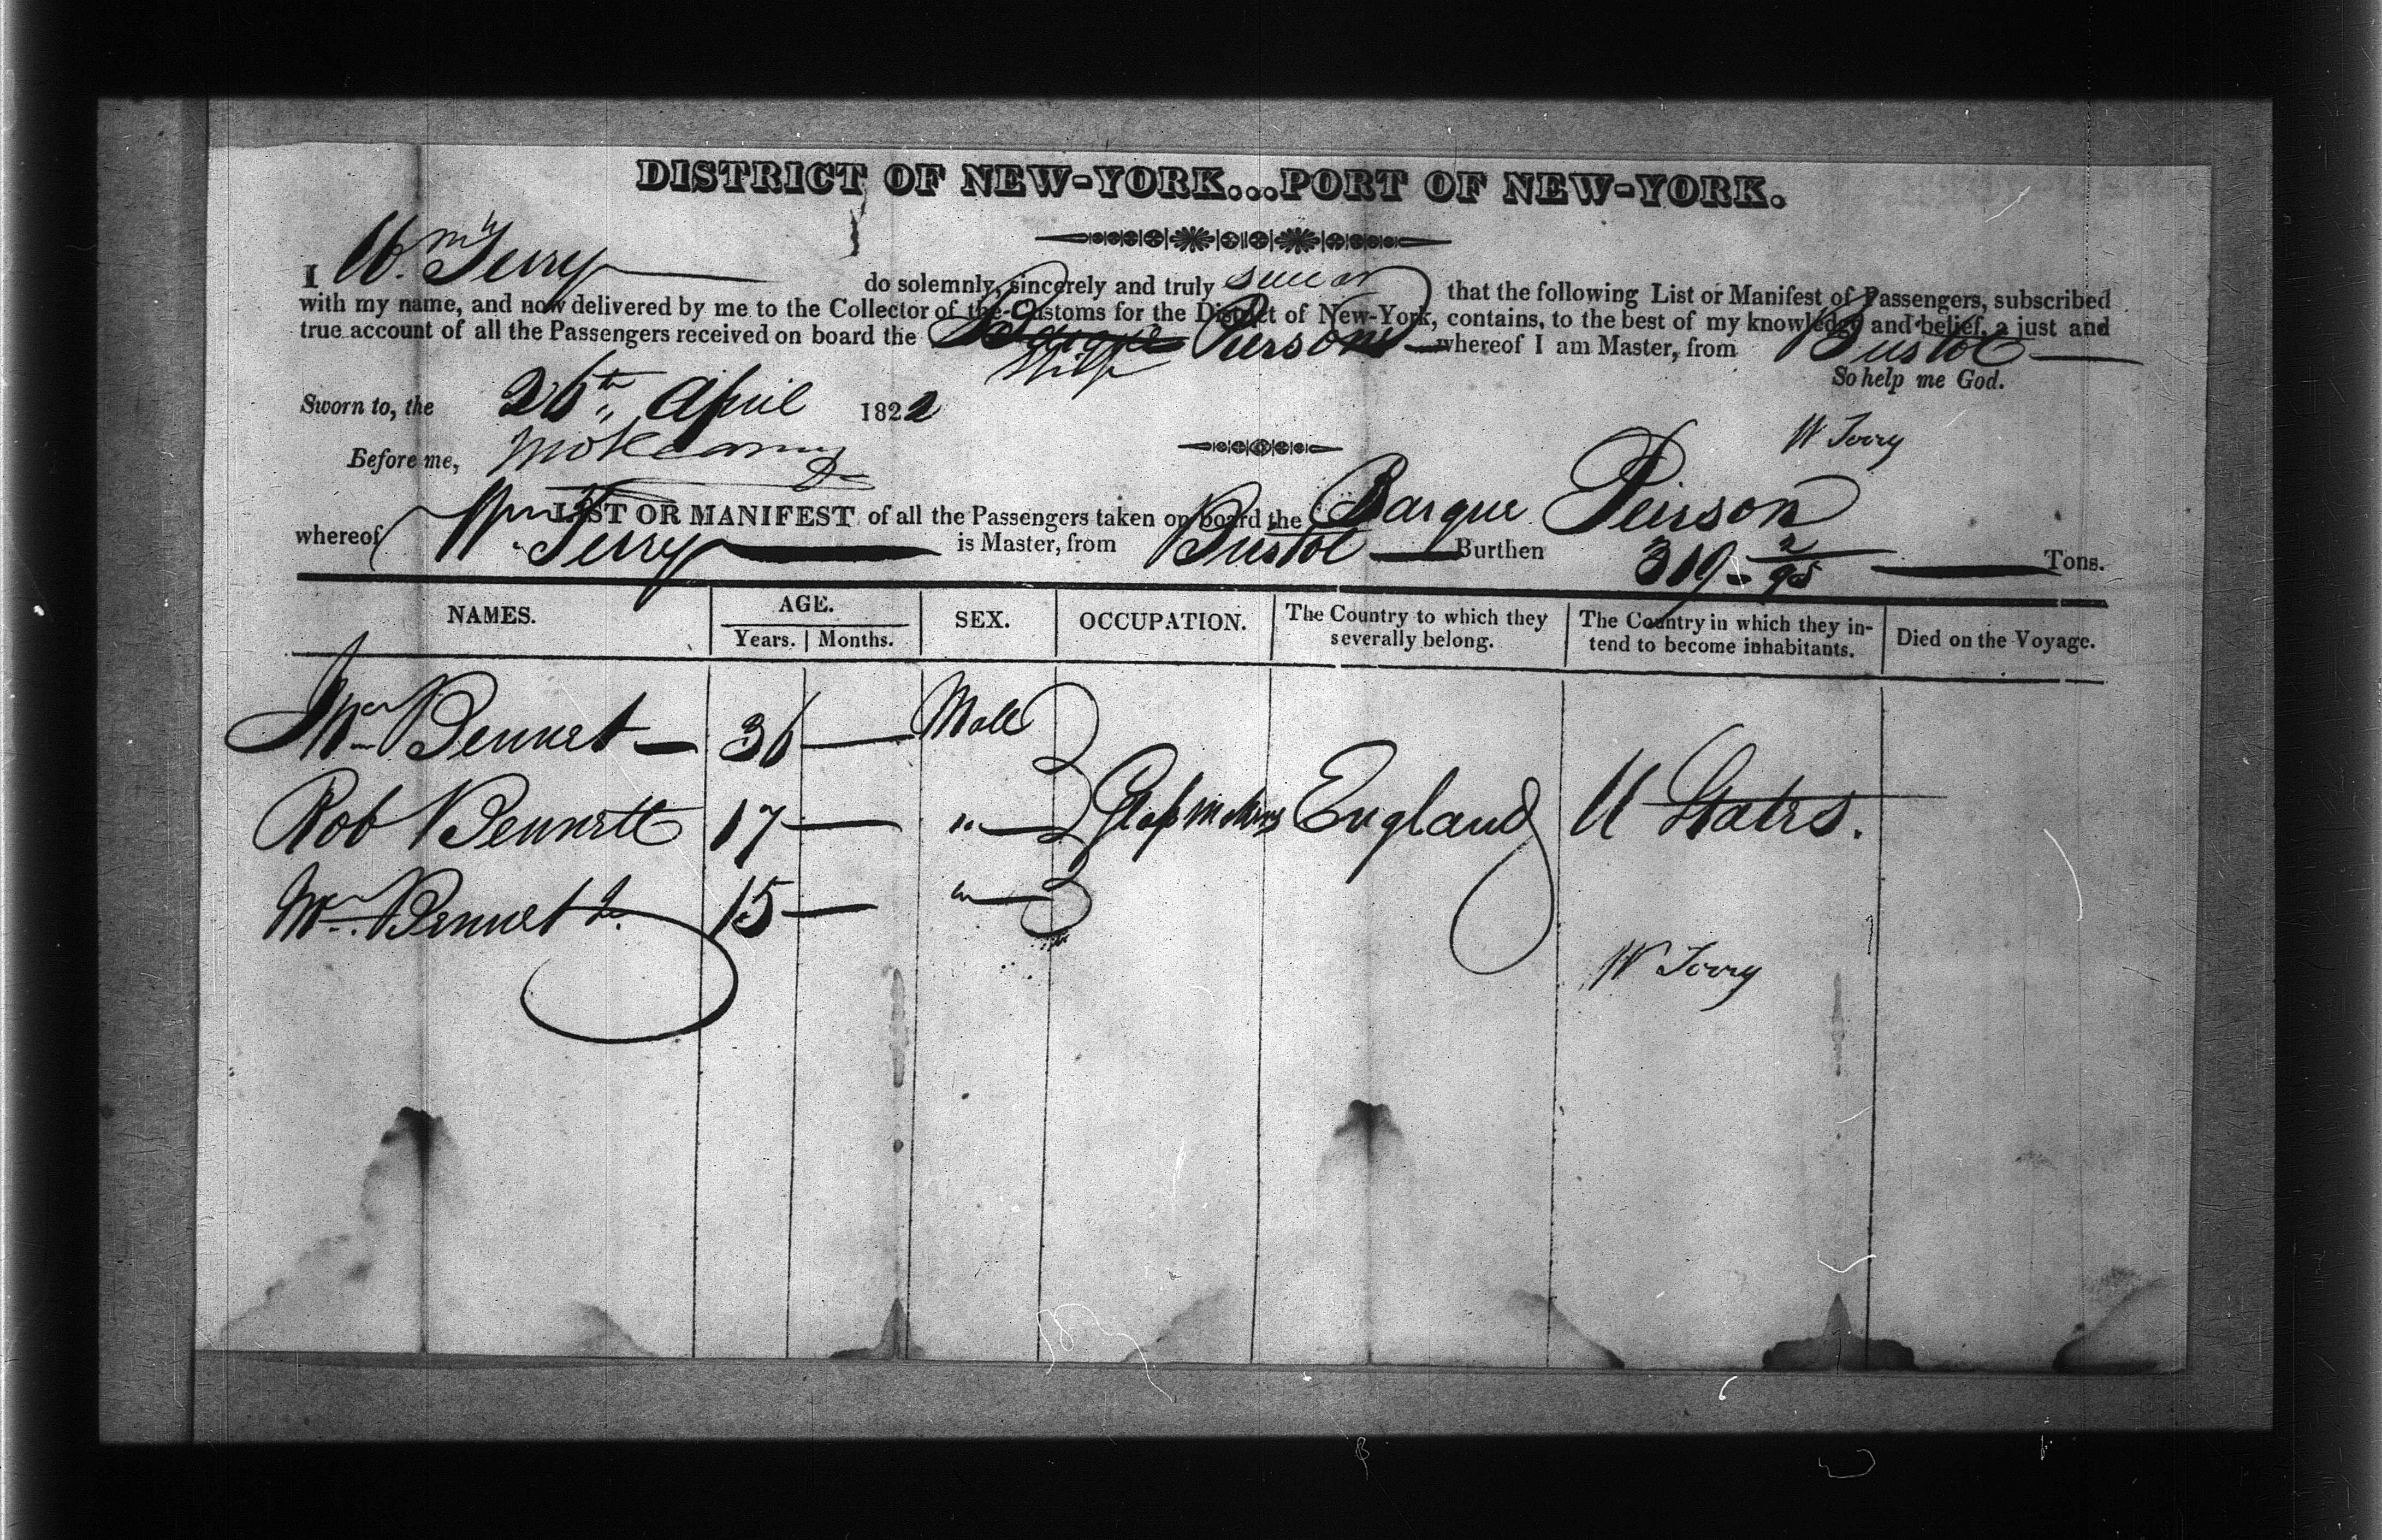 DISTRICT OF NEW-YORK...PORT OF NEW-YORK.
I Wm Terry do solemnly, sincerely and truly swear that the following List or Manifest of Passengers, subscribed
with my name, and now delivered by me to the Collector of the Customs for the District of New-York, contains, to the best of my knowledge and belief, a just and
true account of all the Passengers received on board the Barque Peirson whereof I am Master, from Bristol
Ship
So help me God.
Sworn to, the 26th April 1822
W Terry
Before me,
LIST OR MANIFEST of all the Passengers taken on board the Barque Peirson
whereof Wm Terry is Master, from Bristol Burthen 319 - 2/95 Tons.
NAMES. AGE. SEX. OCCUPATION. The Country to which they severally belong. The Country in which they in-tend to become inhabitants. Died on the Voyage.
Years. Months.
Wm Bennet 36 Male
Rob Bennett 17 " Glass Makers England U States.
Wm Bennet Jr 15 "
W Terry